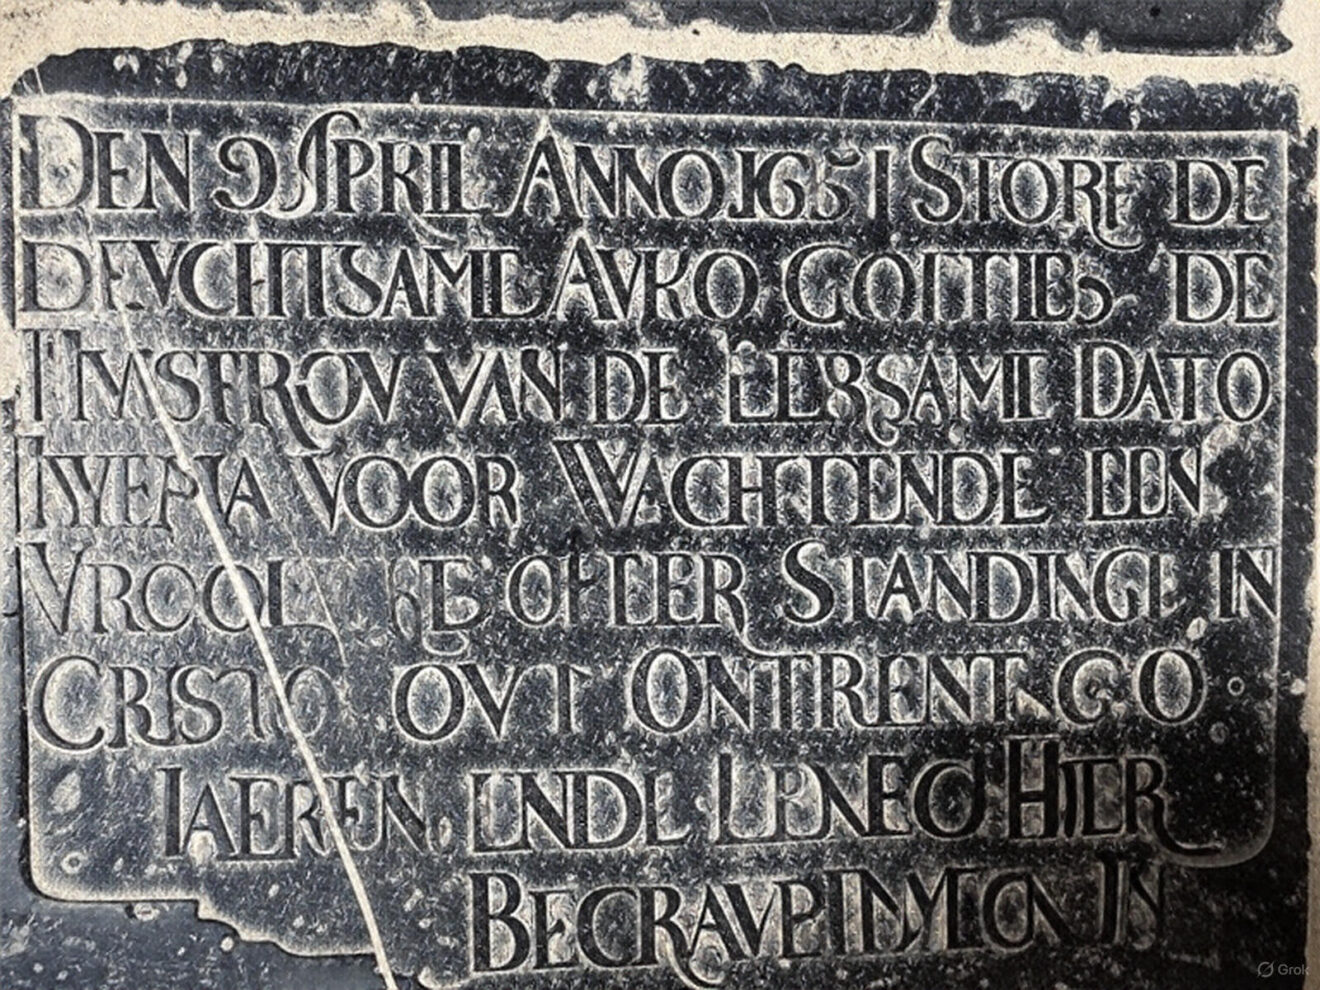 DEN 9 APRIL ANNO 1651 STORF DE
DEVCHTSAME AVKO GOTTIES DE
VAN DE EERSAME DATO
VOOR WACHTENDE EEN
VROOL OPTER STANDINGE IN
CRISTO OVT ONTRENT GO
IAEREN ENDE HIER
IN
Grok